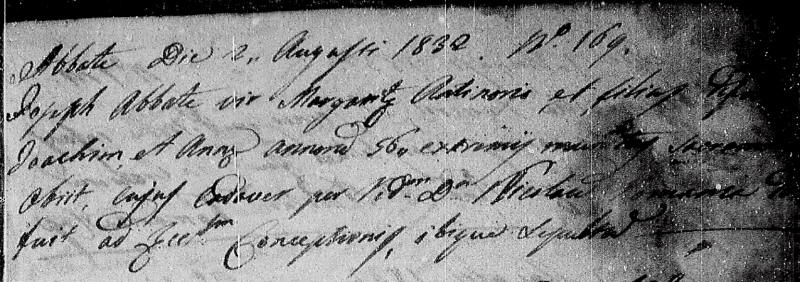 Abbate Die 2. Augusti 1832. N.º 169.
Joseph Abbate vir Margaritæ Antinoris et filius
Joachim, et Annæ annorū 56, extremis munitus Sacramen
Obiit, cujus Cadaver per R.dum D.n Nicolaū
fuit ad Ecc.lam Conceptionis, ibique Sepultū